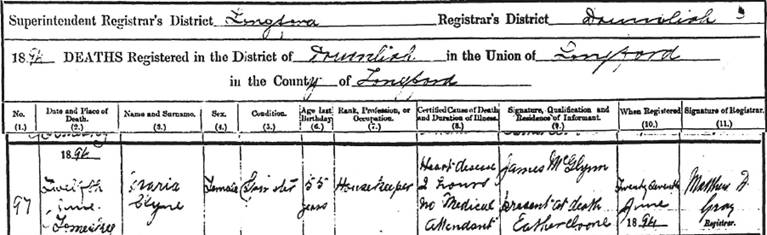 Superintendent Registrar's District Longford Registrar's District Drumlish 3
1894 DEATHS Registered in the District of Drumlish in the Union of Longford
in the County of Longford
No. Date and Place of Death. Name and Surname. Sex. Condition. Age last Birthday Rank, Profession, or Occupation. Certified Cause of Death and Duration of Illness. Signature, Qualification and Residence of Informant. When Registered Signature of Registrar.
(1.) (2.) (3.) (4.) (5.) (6.) (7.) (8.) (9.) (10.) (11.)
97
1894 Twelfth June
Maria Clyne
Female
Spinster
55 years
Housekeeper
Heart disease
2 hours
no Medical
Attendant
James McGlynn
present at death
Twenty seventh
June
1894
Matthew
Gray
Registrar.